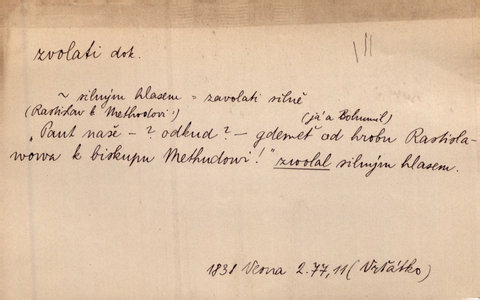 zvolati dok.
~ silným hlasem = zavolati silně
(Rastislav k Methodovi!) (já a Bohumil)
„Paut naše – ? odkud? – gdemeť od hrobu Rastisla-
wowa k biskupu Methudowi!" zwolal silným hlasem.
1838 Vesna 2.77,11 (Vrťátko)